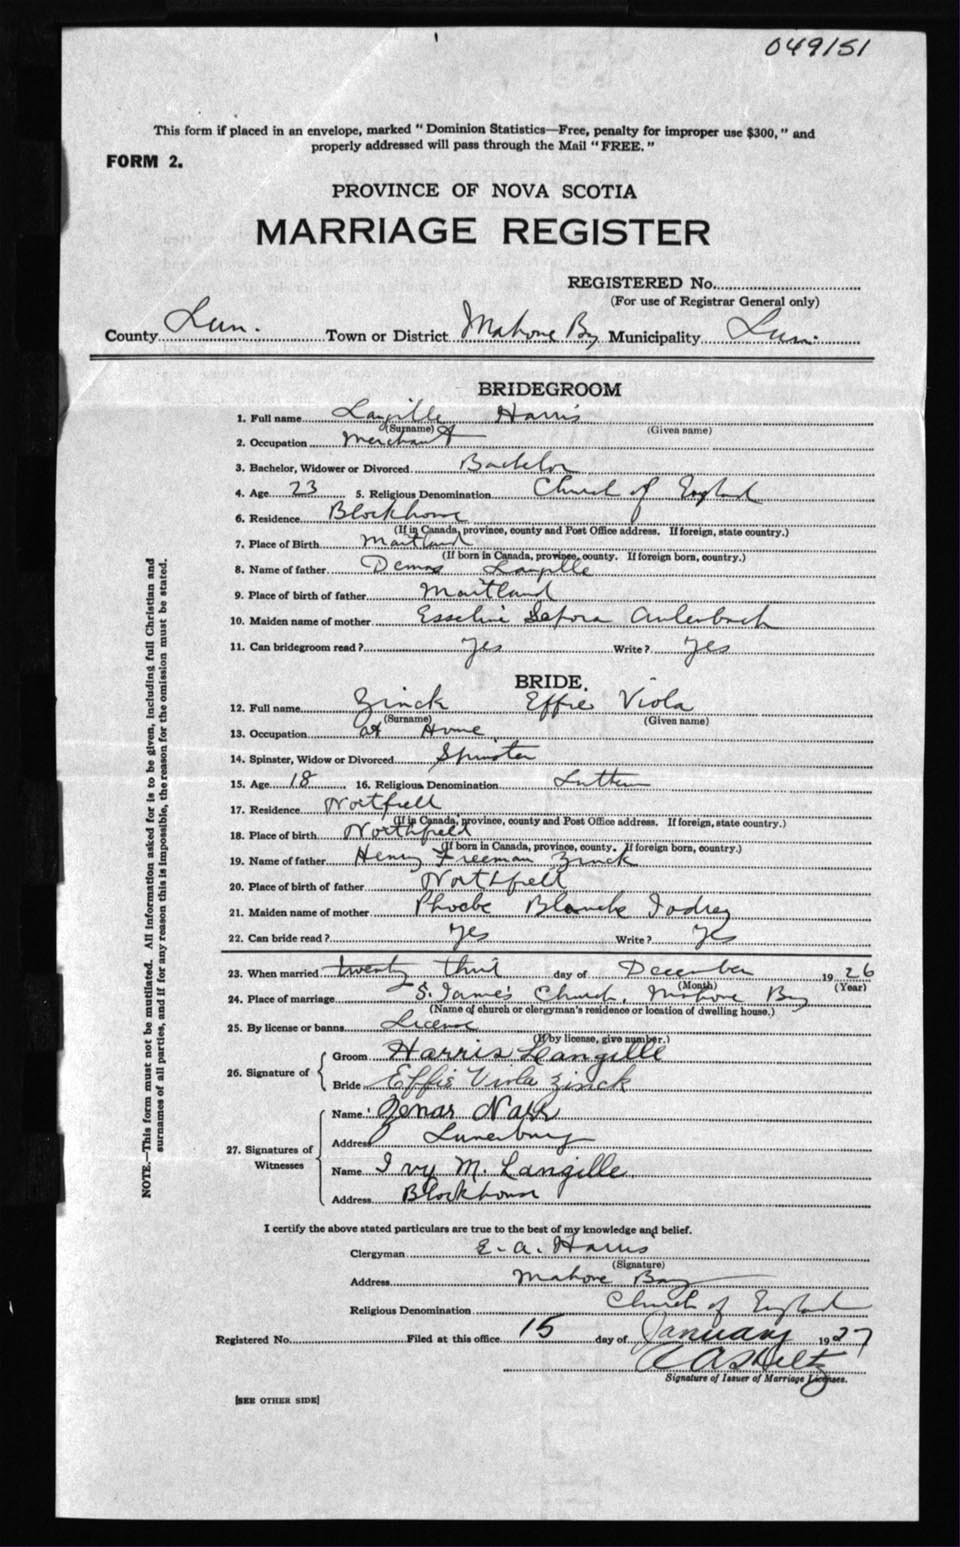 049151
This form if placed in an envelope, marked "Dominion Statistics—Free, penalty for improper use $300," and
properly addressed will pass through the Mail "FREE."
FORM 2.
PROVINCE OF NOVA SCOTIA
MARRIAGE REGISTER
REGISTERED No.
(For use of Registrar General only)
County Lun. Town or District Mahone By Municipality Lun.
BRIDEGROOM
1. Full name Langille Harris
(Surname) (Given name)
2. Occupation Merchant
3. Bachelor, Widower or Divorced Bachelor
4. Age 23 5. Religious Denomination Church of England
6. Residence Blockhouse
(If in Canada, province, county and Post Office address. If foreign, state country.)
7. Place of Birth Maitland
(If born in Canada, province, county. If foreign born, country.)
8. Name of father Demas Langille
9. Place of birth of father Maitland
10. Maiden name of mother Aulenback
11. Can bridegroom read? Yes Write? Yes
BRIDE.
12. Full name Zinck Effie Viola
(Surname) (Given name)
13. Occupation at Home
14. Spinster, Widow or Divorced Spinster
15. Age 18 16. Religious Denomination Luthern
17. Residence Northfield
(If in Canada, province, county and Post Office address. If foreign, state country.)
18. Place of birth Northfield
(If born in Canada, province, county. If foreign born, country.)
19. Name of father Henry Freeman Zinck
20. Place of birth of father Northfield
21. Maiden name of mother Phoebe Blanche Jodrey
22. Can bride read? Yes Write? Yes
23. When married twenty third day of December 1926
(Month) (Year)
24. Place of marriage S. James Church, Mahone Bay
(Name of church or clergyman's residence or location of dwelling house.)
25. By license or banns License
(If by license, give number.)
26. Signature of
Groom Harris Langille
Bride Effie Viola Zinck
27. Signatures of Witnesses
Name Zenas Nass
Address Lunenburg
Name Ivy M. Langille
Address Blockhouse
I certify the above stated particulars are true to the best of my knowledge and belief.
Clergyman E. A. Harris
(Signature)
Address Mahone Bay
Religious Denomination Church of England
Registered No. Filed at this office 15 day of January 1927
Signature of Issuer of Marriage Licenses.
[SEE OTHER SIDE]
NOTE.—This form must not be mutilated. All information asked for is to be given, including full Christian and
surnames of all parties, and if for any reason this is impossible, the reason for the omission must be stated.